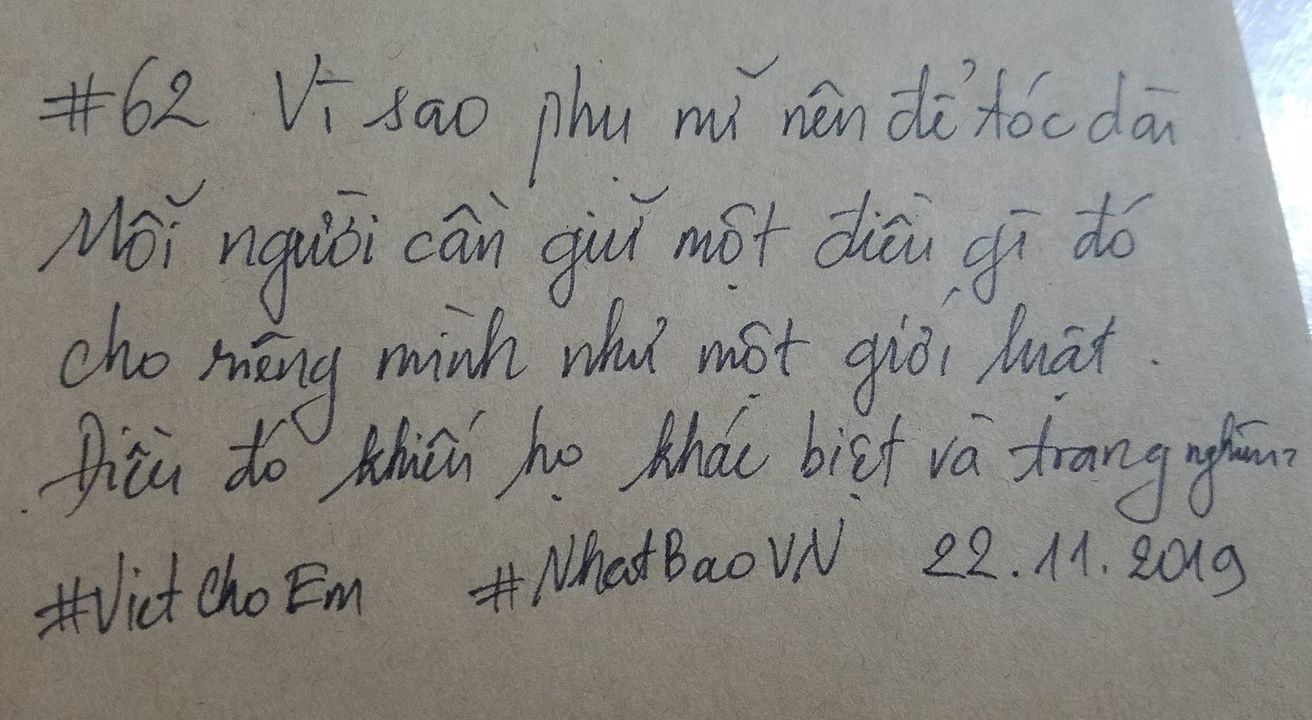 #62 Vì sao phụ nữ nên để tóc dài
Mỗi người cần giữ một điều gì đó
cho riêng mình như một giới luật.
Điều đó khiến họ khác biệt và trang nghiêm
#VietChoEm #NhatBaoVN 22.11.2019